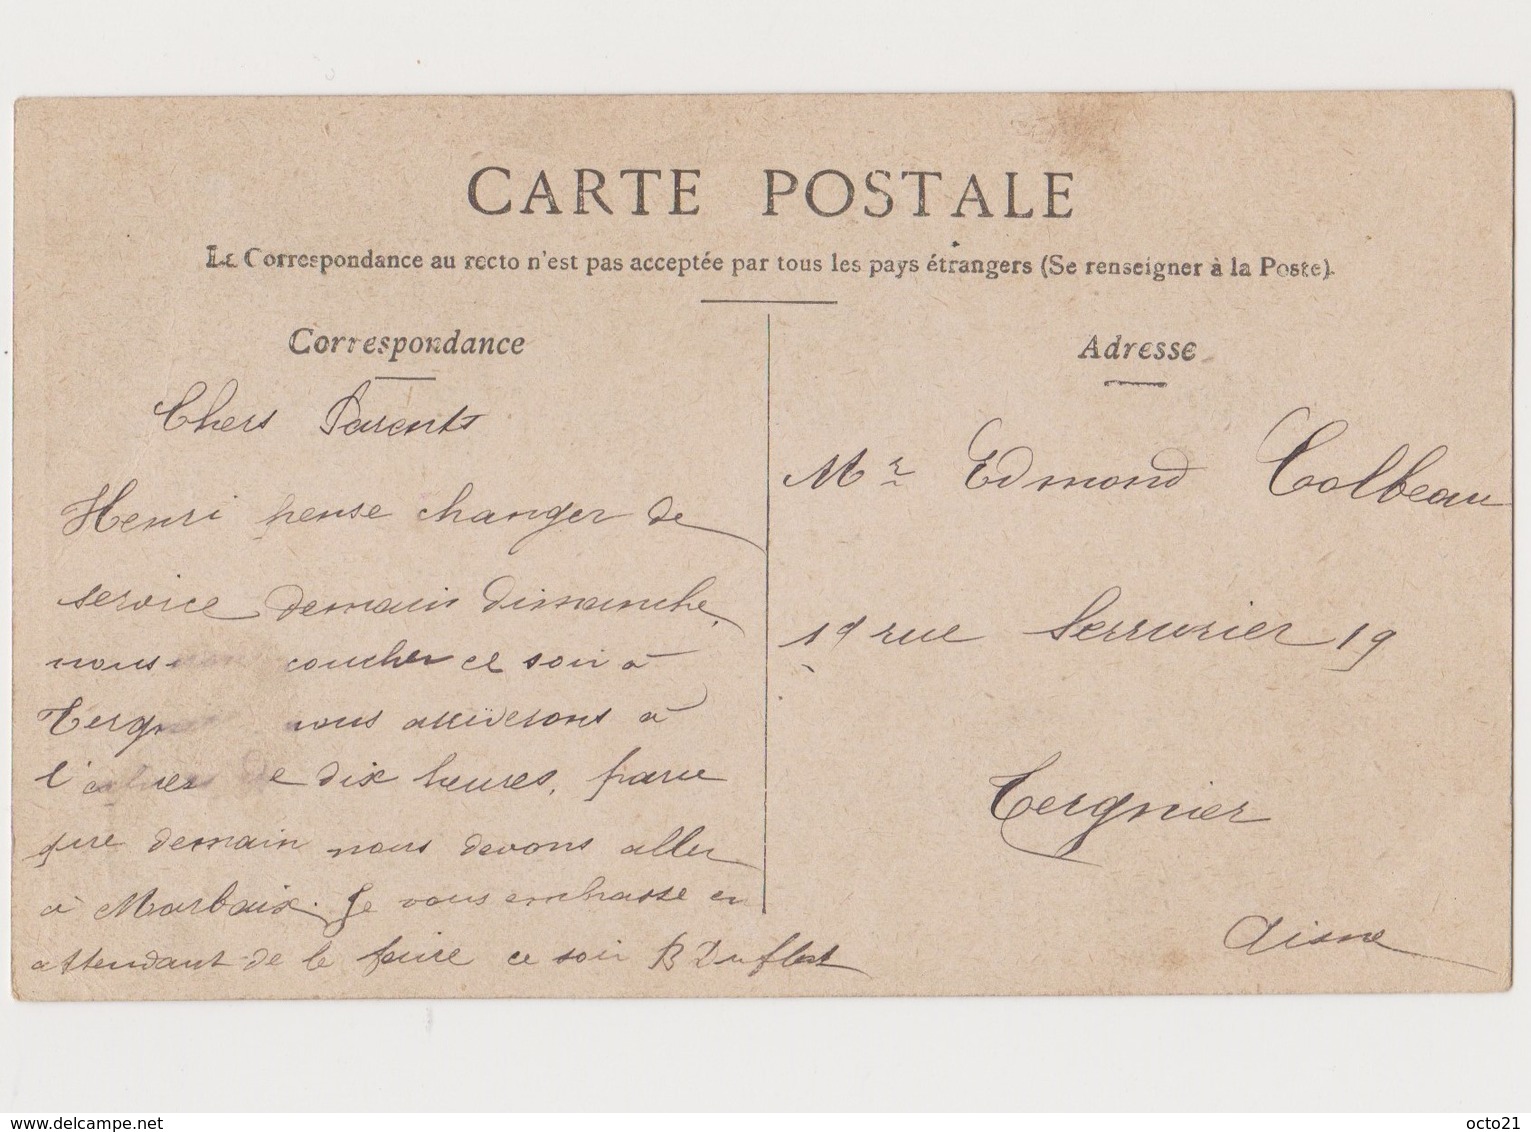 CARTE POSTALE
La Correspondance au recto n'est pas acceptée par tous les pays étrangers (Se renseigner à la Poste).
Correspondance
Chers Parents
Henri pense changer de
service demain dimanche,
nous coucher ce soir à
Tergnier nous arriverons à
l' de dix heures, parce
que demain nous devons aller
à Marbaix. Je vous embrasse en
attendant de le faire ce soir B
Adresse
Mr Edmond Colbeau
19 rue Serrurier 19
Tergnier
Aisne
www.delcampe.net
octo21